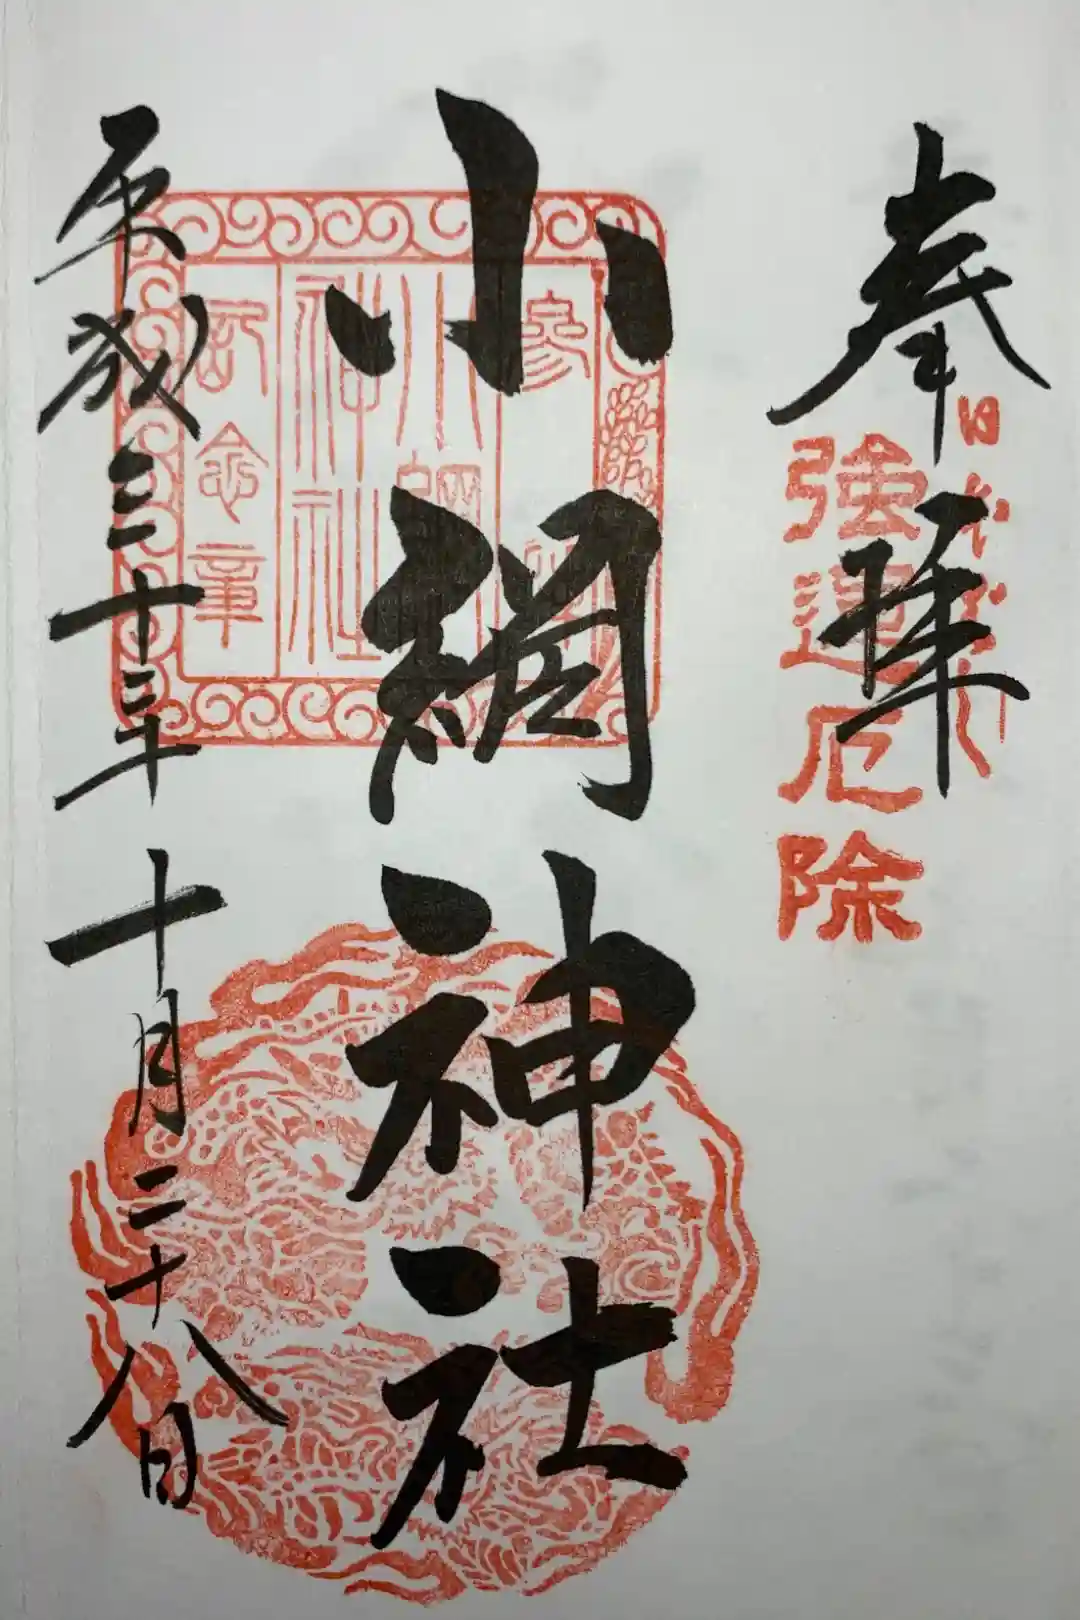 奉拝
日本橋
強運厄除
小網神社
参拝
小網
神社
記念章
平成三十年十月二十八日